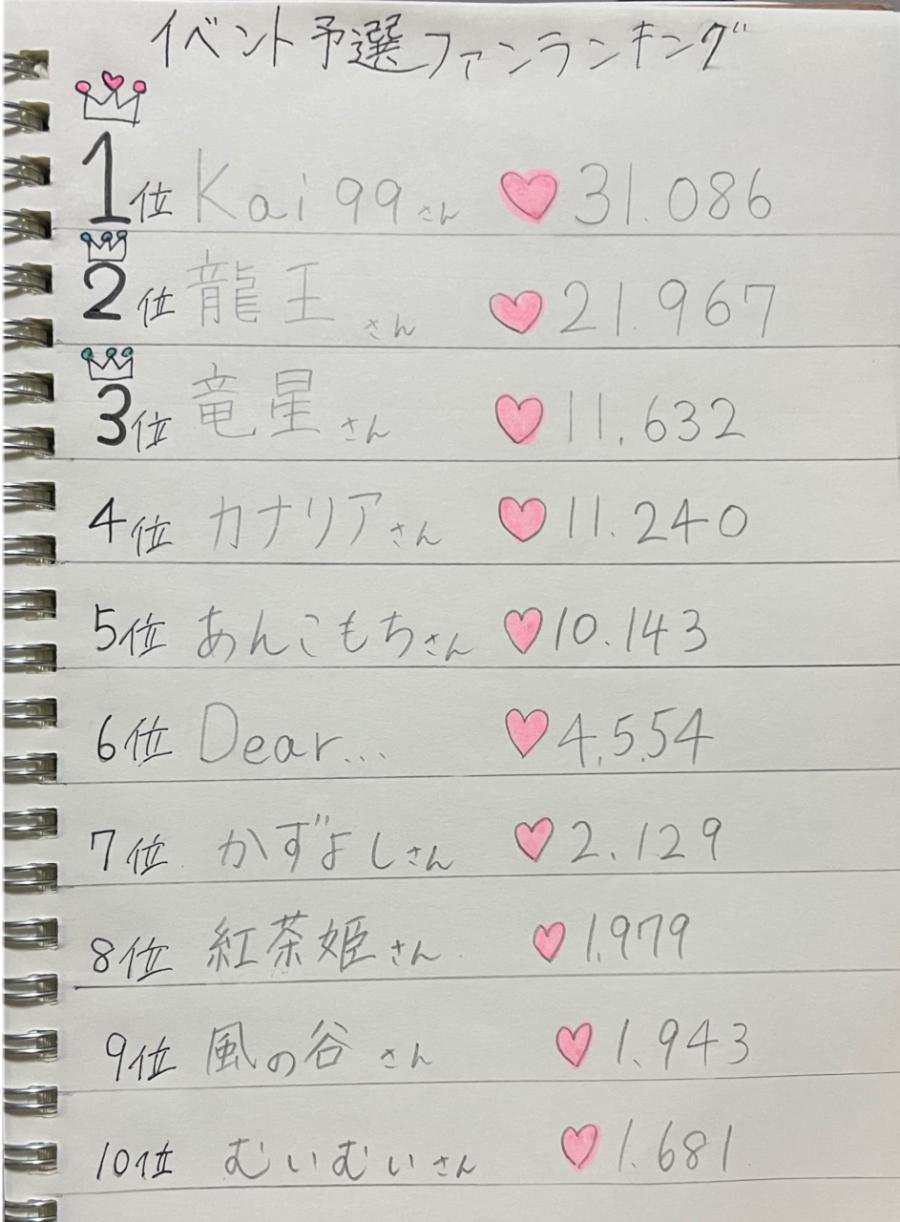 イベント予選ファンランキング
1位 Kai99さん 31.086
2位 龍王さん 21.967
3位 竜星さん 11.632
4位 カナリアさん 11.240
5位 あんこもちさん 10.143
6位 Dear... 4.554
7位 かずよしさん 2.129
8位 紅茶姫さん 1.979
9位 風の谷さん 1.943
10位 むいむいさん 1.681